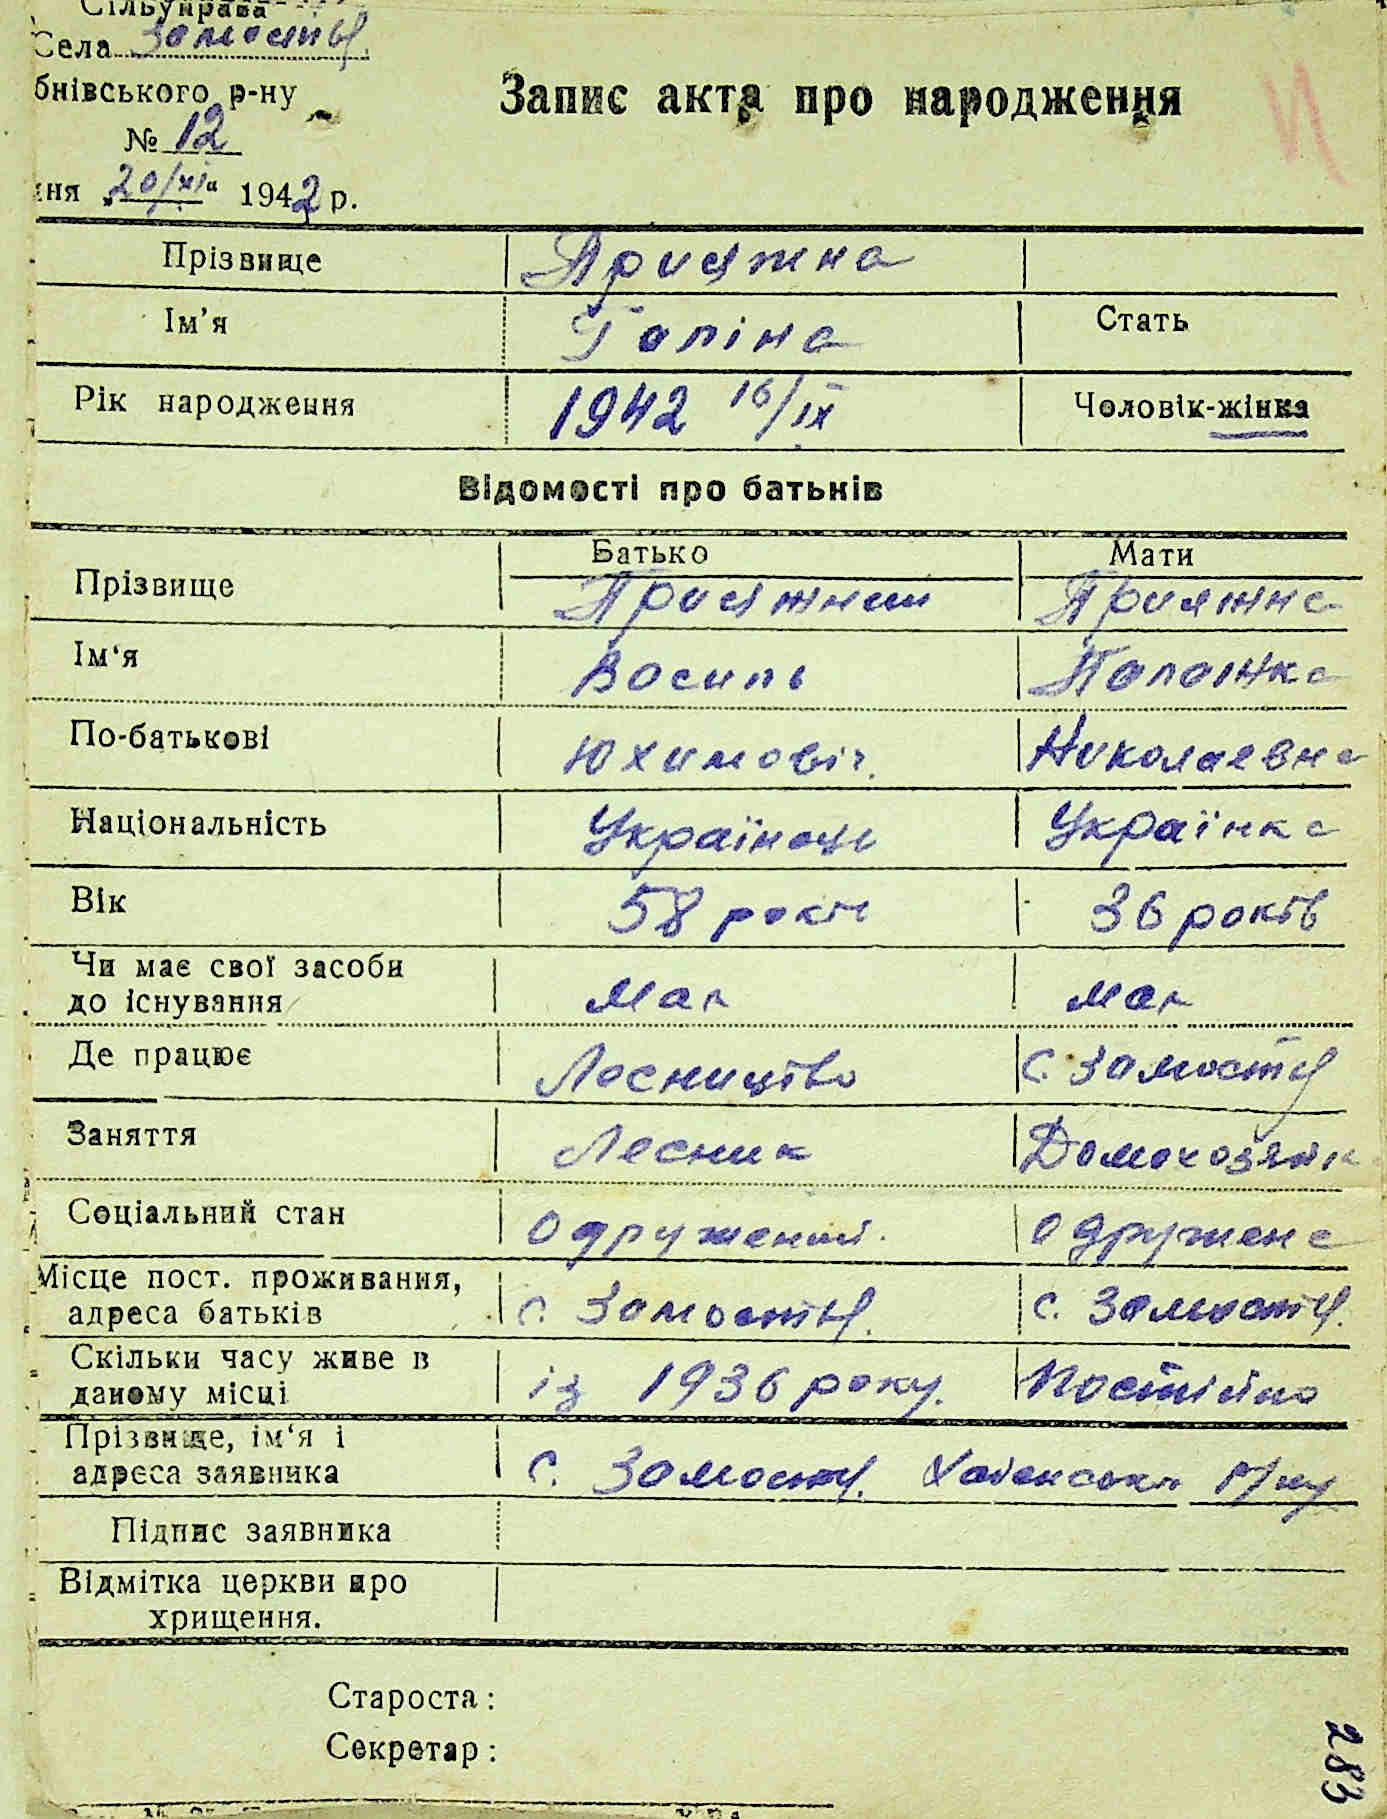 Сільуправа
Села Замостя
бнівського р-ну
№ 12
дня „20/XI“ 1942 р.
Запис акта про народження
Прізвище Присяжна
Ім'я Галіна Стать
Рік народження 1942 16/IX Чоловік-жінка
Відомості про батьків
Батько Мати
Прізвище Присяжний Присяжна
Ім'я Василь Палажка
По-батькові Юхимовіч. Николаевна
Національність Українець Українка
Вік 58 років 36 років
Чи має свої засоби
до існування має має
Де працює Лесництво С. Замостя
Заняття Лесник Домохозяйк
Соціальний стан Одружений. Одружена
Місце пост. проживання,
адреса батьків с. Замостя. с. Замостя.
Скільки часу живе в
даному місці із 1936 року. Постійно
Прізвище, ім'я і
адреса заявника С. Замостя. р/ну
Підпис заявника
Відмітка церкви про
хрищення.
Староста:
Секретар:
283